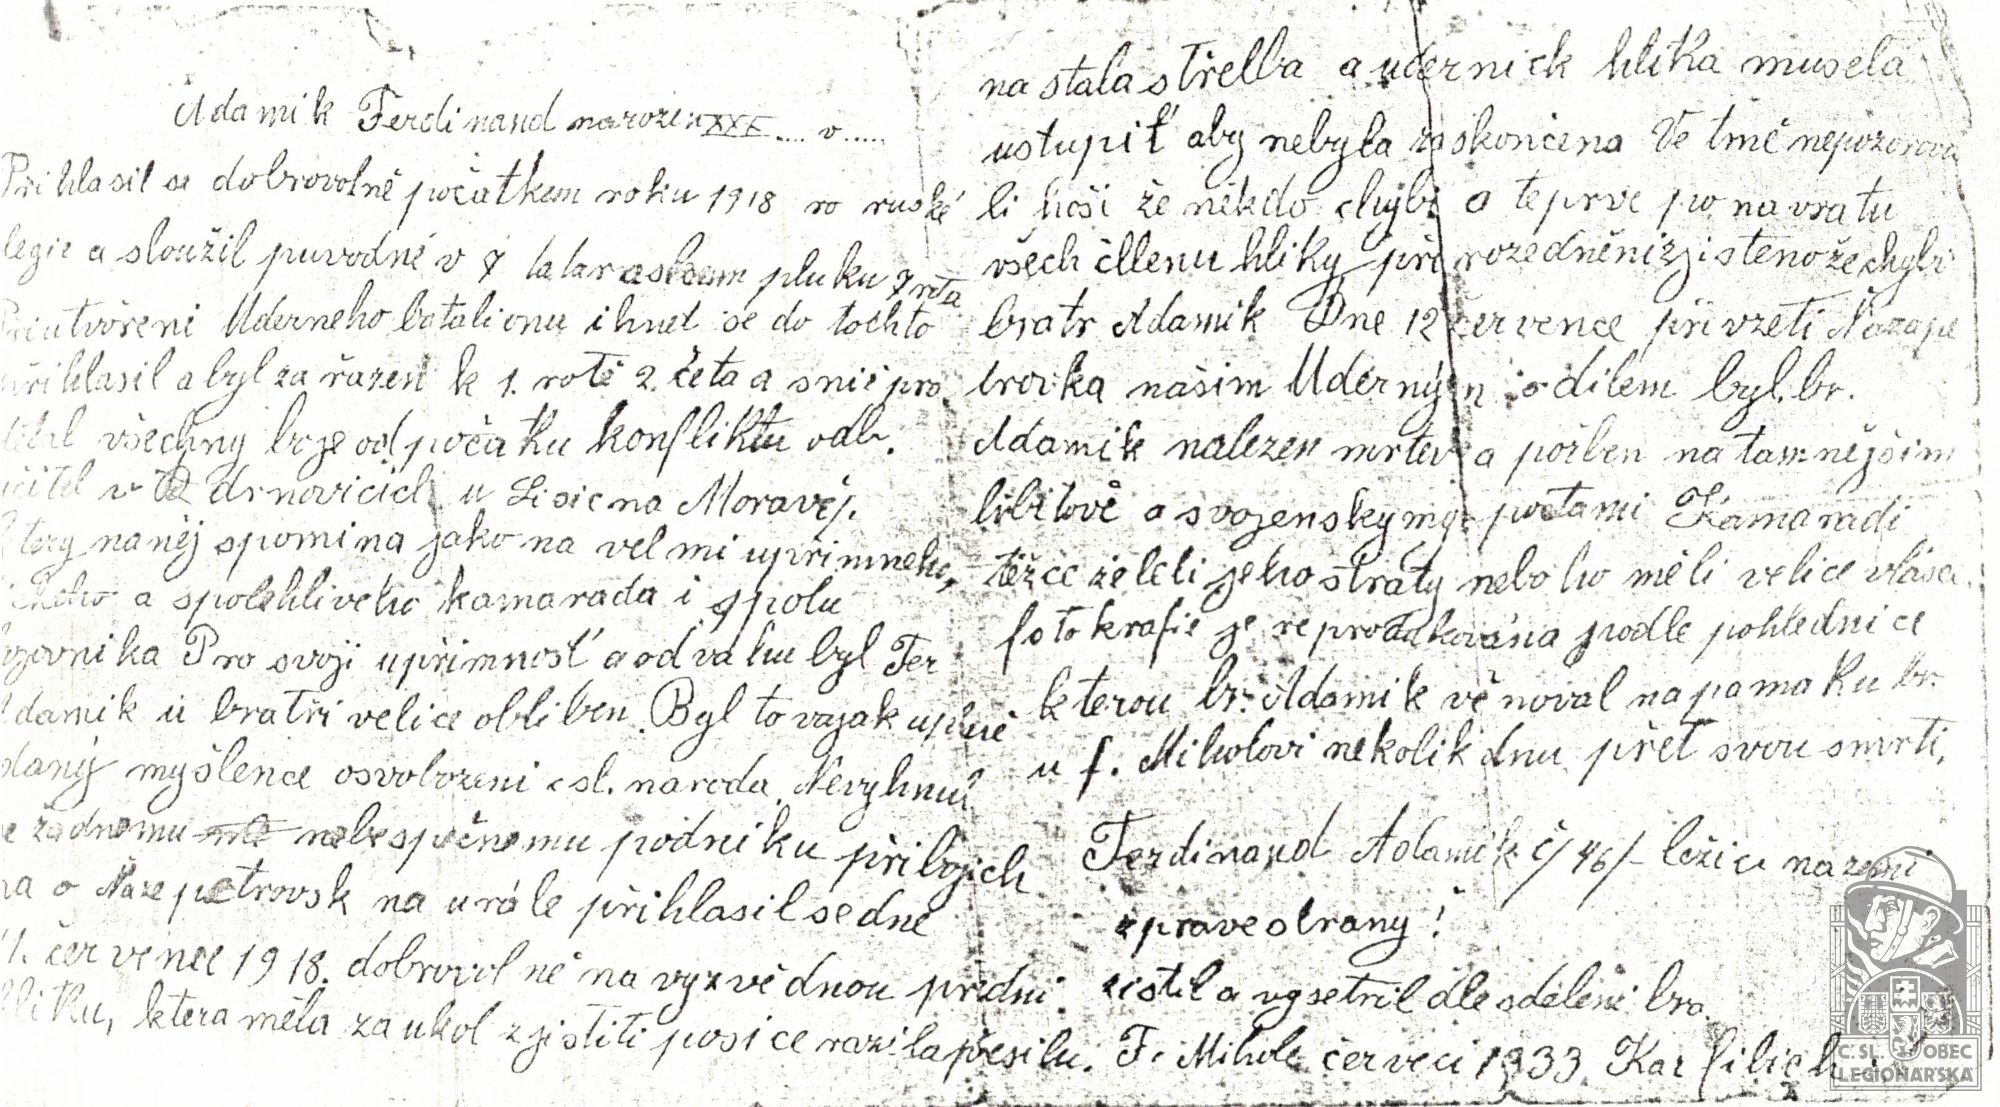 Adamik Ferdinand narozen XXX .... v .....
Přihlasil se dobrovolně počatkem roku 1918 ro ruské
legie a sloužil puvodně v 7 tataraskem pluku 7 rota
Při utvořeni Uderneho batalionu ihned se do tochto
přihlasil a byl zařazen k 1. rotě 2. četa a snie pro
dělal všechny boje od počatku konfliktu odb.
učitel v drnovicich u Lisic na Moravěj.
ktery naněj spomina jako na velmi upřimneho,
a spolehliveho kamarada i spolu
bojovnika Pro svoji upřimnost a odvahu byl Fer
Adamik u bratři velice obliben. Byl to vojak uplně
odaný myšlence osvobozeni čsl. naroda. Nevyhnul
se žadnemu nebespečnemu podniku při bojich
na o Naze petrovsk na urále přihlasil se dne
11. července 1918. dobrovolně na vyzvědnou předni
hliku, ktera měla za ukol zjistiti posice razila přesilu.
nastala střelba a udernick hlitka musela
ustupit aby nebyla zaskončena Ve tmě nepozorova
li hoši že někdo chybi a teprve po navratu
všech čllenu hliky při rozedněni zjisteno že chybi
bratr Adamik Dne 12 července při vzeti Nazape
trovka našim Uderným odilem byl. br.
Adamik nalezen mrtev a pořben na tamnějšim
hřbitově a svojenskymy poctami Kamaradi
těžce želeli jeho straty nebo ho měli velice vlasce.
fotokrafie je reprodakovana podle pohlednice
kterou br. Adamik věnoval na pamaku br.
u f. Miholovi nekolik dnu přet svou smrti.
Ferdinand Adamik č/46/- ležici na zemi
zprave strany!
zistil a vysetril dle sděleni bra.
F. Mihole červeci 1933. Kar filich.
Č. SL. OBEC
LEGIONÁŘSKÁ